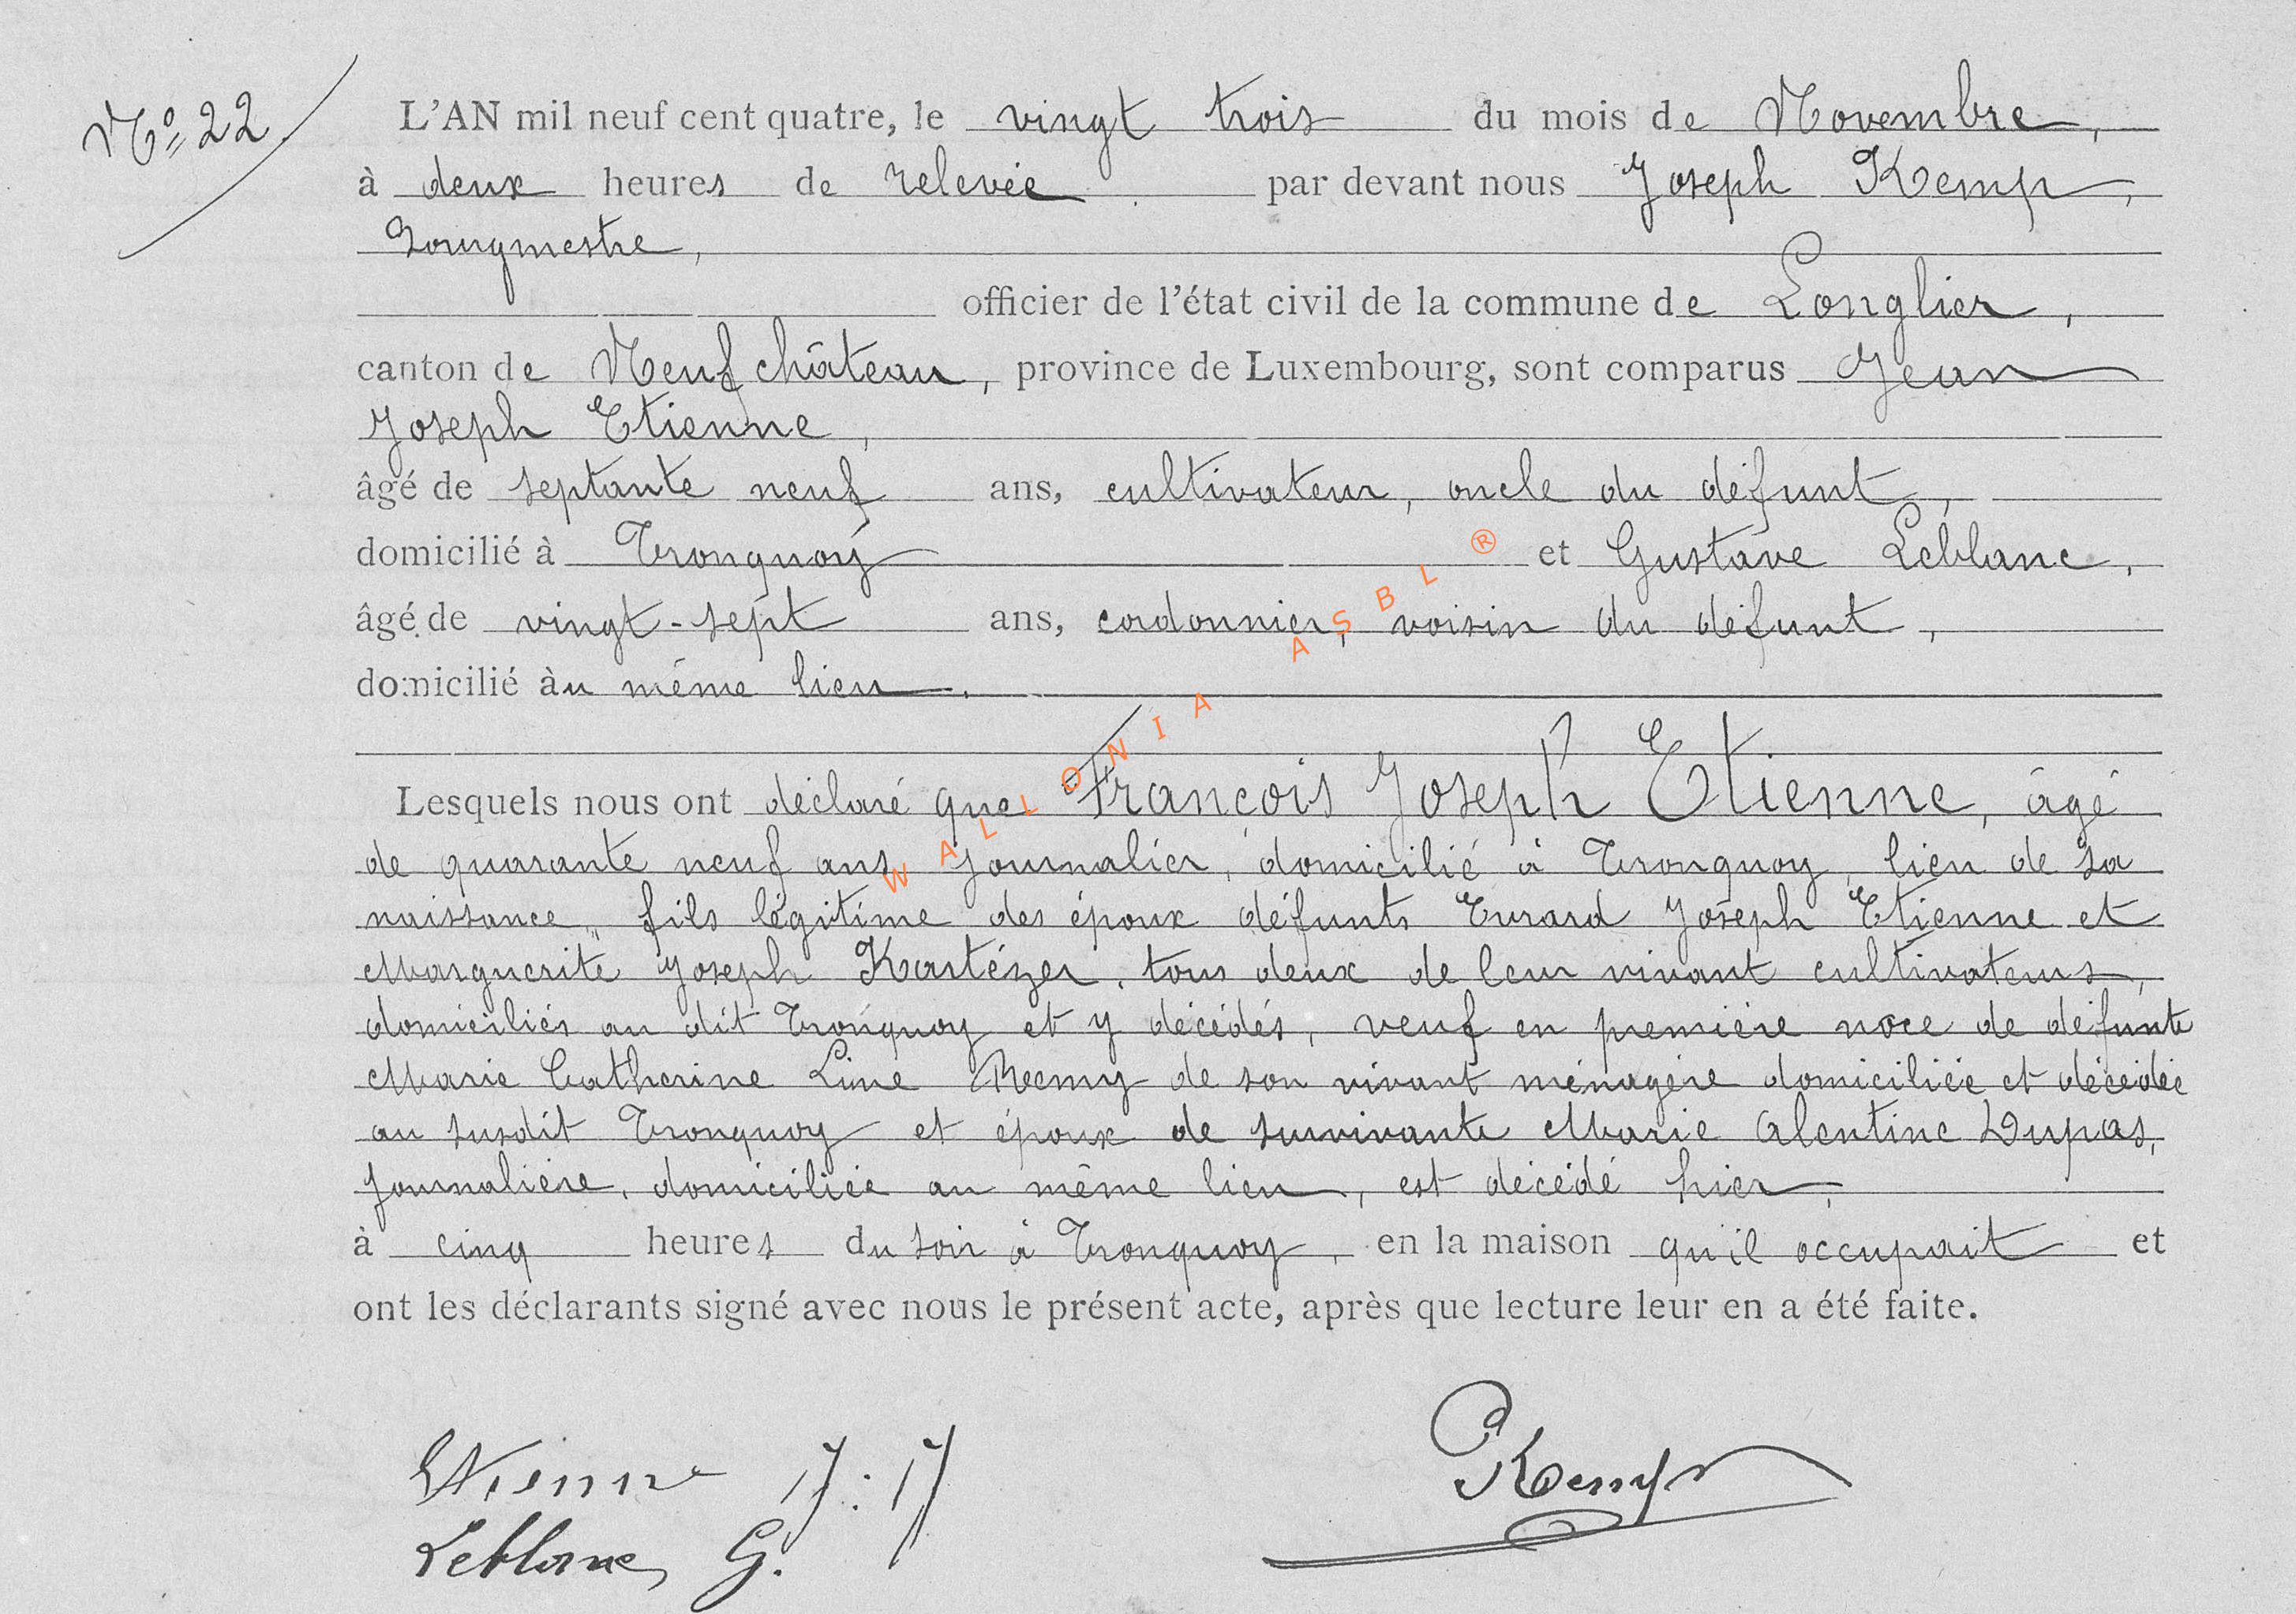 Nº 22
L'AN mil neuf cent quatre, le vingt trois du mois de Novembre,
à deux heures de relevée par devant nous Joseph Kemp,
Bourgmestre,
officier de l'état civil de la commune de Longlier,
canton de Neufchâteau, province de Luxembourg, sont comparus Jean
Joseph Etienne,
âgé de septante neuf ans, cultivateur, oncle du défunt,
domicilié à Tronquoy et Gustave Leblanc,
âgé de vingt-sept ans, cordonnier, voisin du défunt,
domicilié àu même lieu.
Lesquels nous ont déclaré que François Joseph Etienne, âgé
de quarante neuf ans, journalier, domicilié à Tronquoy, lieu de sa
naissance, fils légitime des époux défunts Evrard Joseph Etienne et
Marguerite Joseph Kartézer, tous deux de leur vivant cultivateurs,
domiciliés au dit Tronquoy et y décédés, veuf en première noce de défunte
Marie Catherine Line Remy de son vivant ménagère domiciliée et décédée
au susdit Tronquoy et époux de survivante Marie Alentine Dupas,
journalière, domiciliée au même lieu, est décédé hier,
à cinq heures du soir à Tronquoy, en la maison qu'il occupait et
ont les déclarants signé avec nous le présent acte, après que lecture leur en a été faite.
Etienne J. J
Kemp
Leblanc G.
WALLONIA ASBL ®